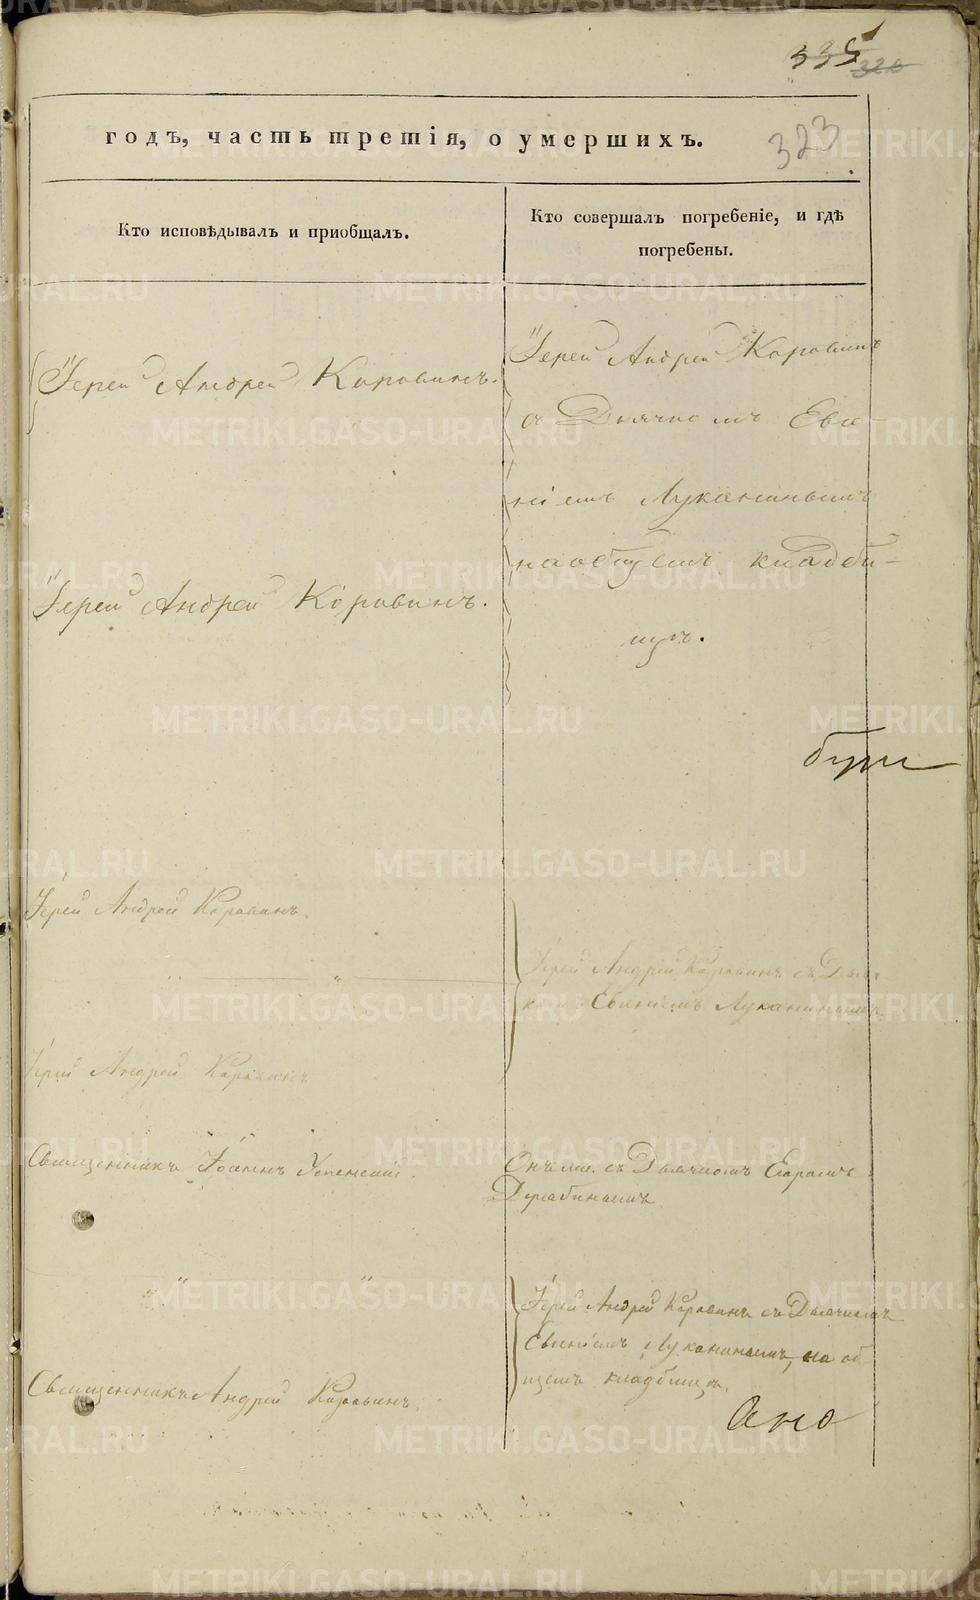 335
320
годъ, часть третія, о умершихъ.
323
Кто исповѣдывалъ и приобщалъ.
Кто совершалъ погребеніе, и гдѣ
погребены.
Іерей Андрей Коровинъ.
Іерей Андрей Коровинъ
съ Дьячкомъ Евге
ніемъ Луканинымъ
на общемъ кладби-
щѣ.
Іерей Андрей Коровинъ.
Іерей Андрей Коровинъ.
Іерей Андрей Коровинъ съ Дьяч
Евгеніемъ Луканинымъ
Іерей Андрей Коровинъ
Священникъ Іоаннъ Успенскій.
Онъ же съ Дьячкомъ
Іерей Андрей Коровинъ съ Дьячкомъ
Евгеніемъ Луканинымъ, на об
щемъ кладбищѣ.
Священникъ Андрей Коровинъ.
METRIKI.GASO-URAL.RU